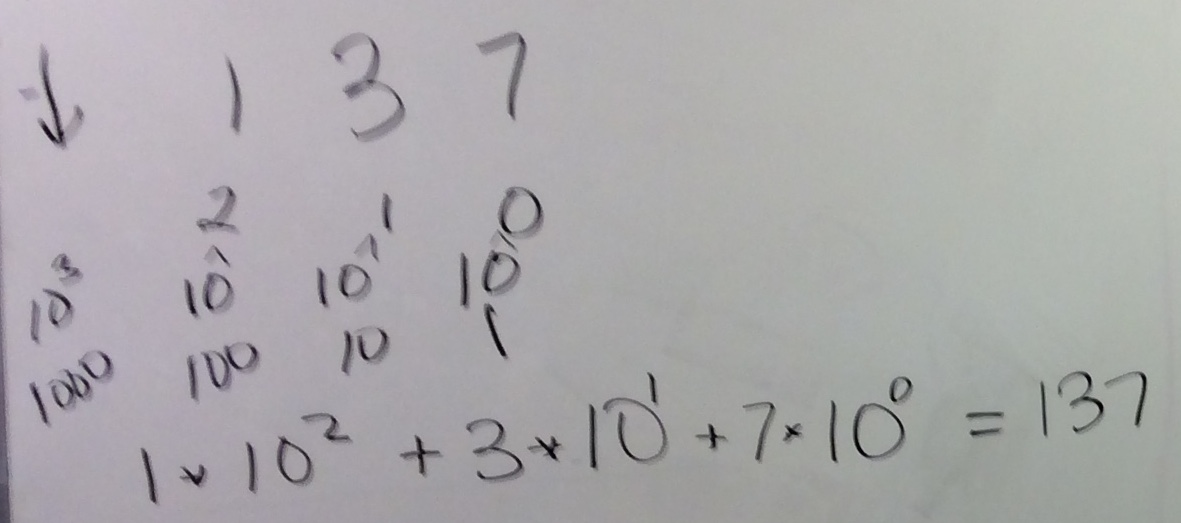 ↓ 1 3 7
2 1 0
10³ 10^ 10^ 10^
1000 100 10 1
1 * 10² + 3 * 10¹ + 7 * 10⁰ = 137